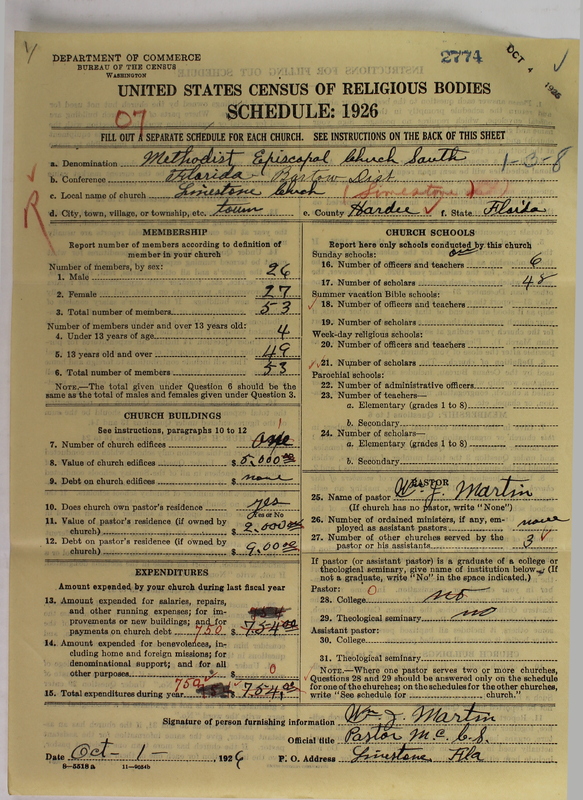 DEPARTMENT OF COMMERCE
BUREAU OF THE CENSUS
WASHINGTON
2774
OCT 4 1926
UNITED STATES CENSUS OF RELIGIOUS BODIES
SCHEDULE: 1926
07
FILL OUT A SEPARATE SCHEDULE FOR EACH CHURCH. SEE INSTRUCTIONS ON THE BACK OF THIS SHEET
a. Denomination Methodist Episcopal Church South 1-3-8
b. Conference Florida - Bartow Dist.
c. Local name of church Limestone Church
R
d. City, town, village, or township, etc. town e. County Hardee f. State Florida
MEMBERSHIP
Report number of members according to definition of
member in your church
Number of members, by sex:
1. Male 26
2. Female 27
3. Total number of members 53
Number of members under and over 13 years old:
4. Under 13 years of age 4
5. 13 years old and over 49
6. Total number of members 53
NOTE.—The total given under Question 6 should be
same as the total of males and females given under Question 3.
CHURCH BUILDINGS
See instructions, paragraphs 10 to 12
7. Number of church edifices One 1
8. Value of church edifices $ 5,000.00
9. Debt on church edifices $ none
10. Does church own pastor's residence yes
Yes or No
11. Value of pastor's residence (if owned by
church) $ 2,000.00
12. Debt on pastor's residence (if owned by
church) $ 9,00.00
EXPENDITURES
Amount expended by your church during last fiscal year
13. Amount expended for salaries, repairs,
and other running expenses; for im-
provements or new buildings; and for
payments on church debt 750 $ 754.00
14. Amount expended for benevolences, in-
cluding home and foreign missions; for
denominational support; and for all
other purposes $ 0
15. Total expenditures during year 750 $ 754.00
CHURCH SCHOOLS
Report here only schools conducted by this church
Sunday schools: one
16. Number of officers and teachers 6
17. Number of scholars 48
Summer vacation Bible schools:
18. Number of officers and teachers
19. Number of scholars
Week-day religious schools:
20. Number of officers and teachers
21. Number of scholars
Parochial schools:
22. Number of administrative officers
23. Number of teachers—
a. Elementary (grades 1 to 8)
b. Secondary
24. Number of scholars—
a. Elementary (grades 1 to 8)
b. Secondary
PASTOR
25. Name of pastor W. J. Martin
(If church has no pastor, write "None")
26. Number of ordained ministers, if any, em-
ployed as assistant pastors none
27. Number of other churches served by the
pastor or his assistants 3
If pastor (or assistant pastor) is a graduate of a college or
theological seminary, give name of institution below. (If
not a graduate, write "No" in the space indicated.)
Pastor: 0
28. College no
29. Theological seminary no
Assistant pastor:
30. College
31. Theological seminary
NOTE.—Where one pastor serves two or more churches,
Questions 28 and 29 should be answered only on the schedule
for one of the churches; on the schedules for the other churches,
write "See schedule for church."
Signature of person furnishing information Wm J. Martin
Official title Pastor M. E. C. S.
Date Oct - 1 - , 1926 P. O. Address Limestone Fla
8—5518a 11—9054b